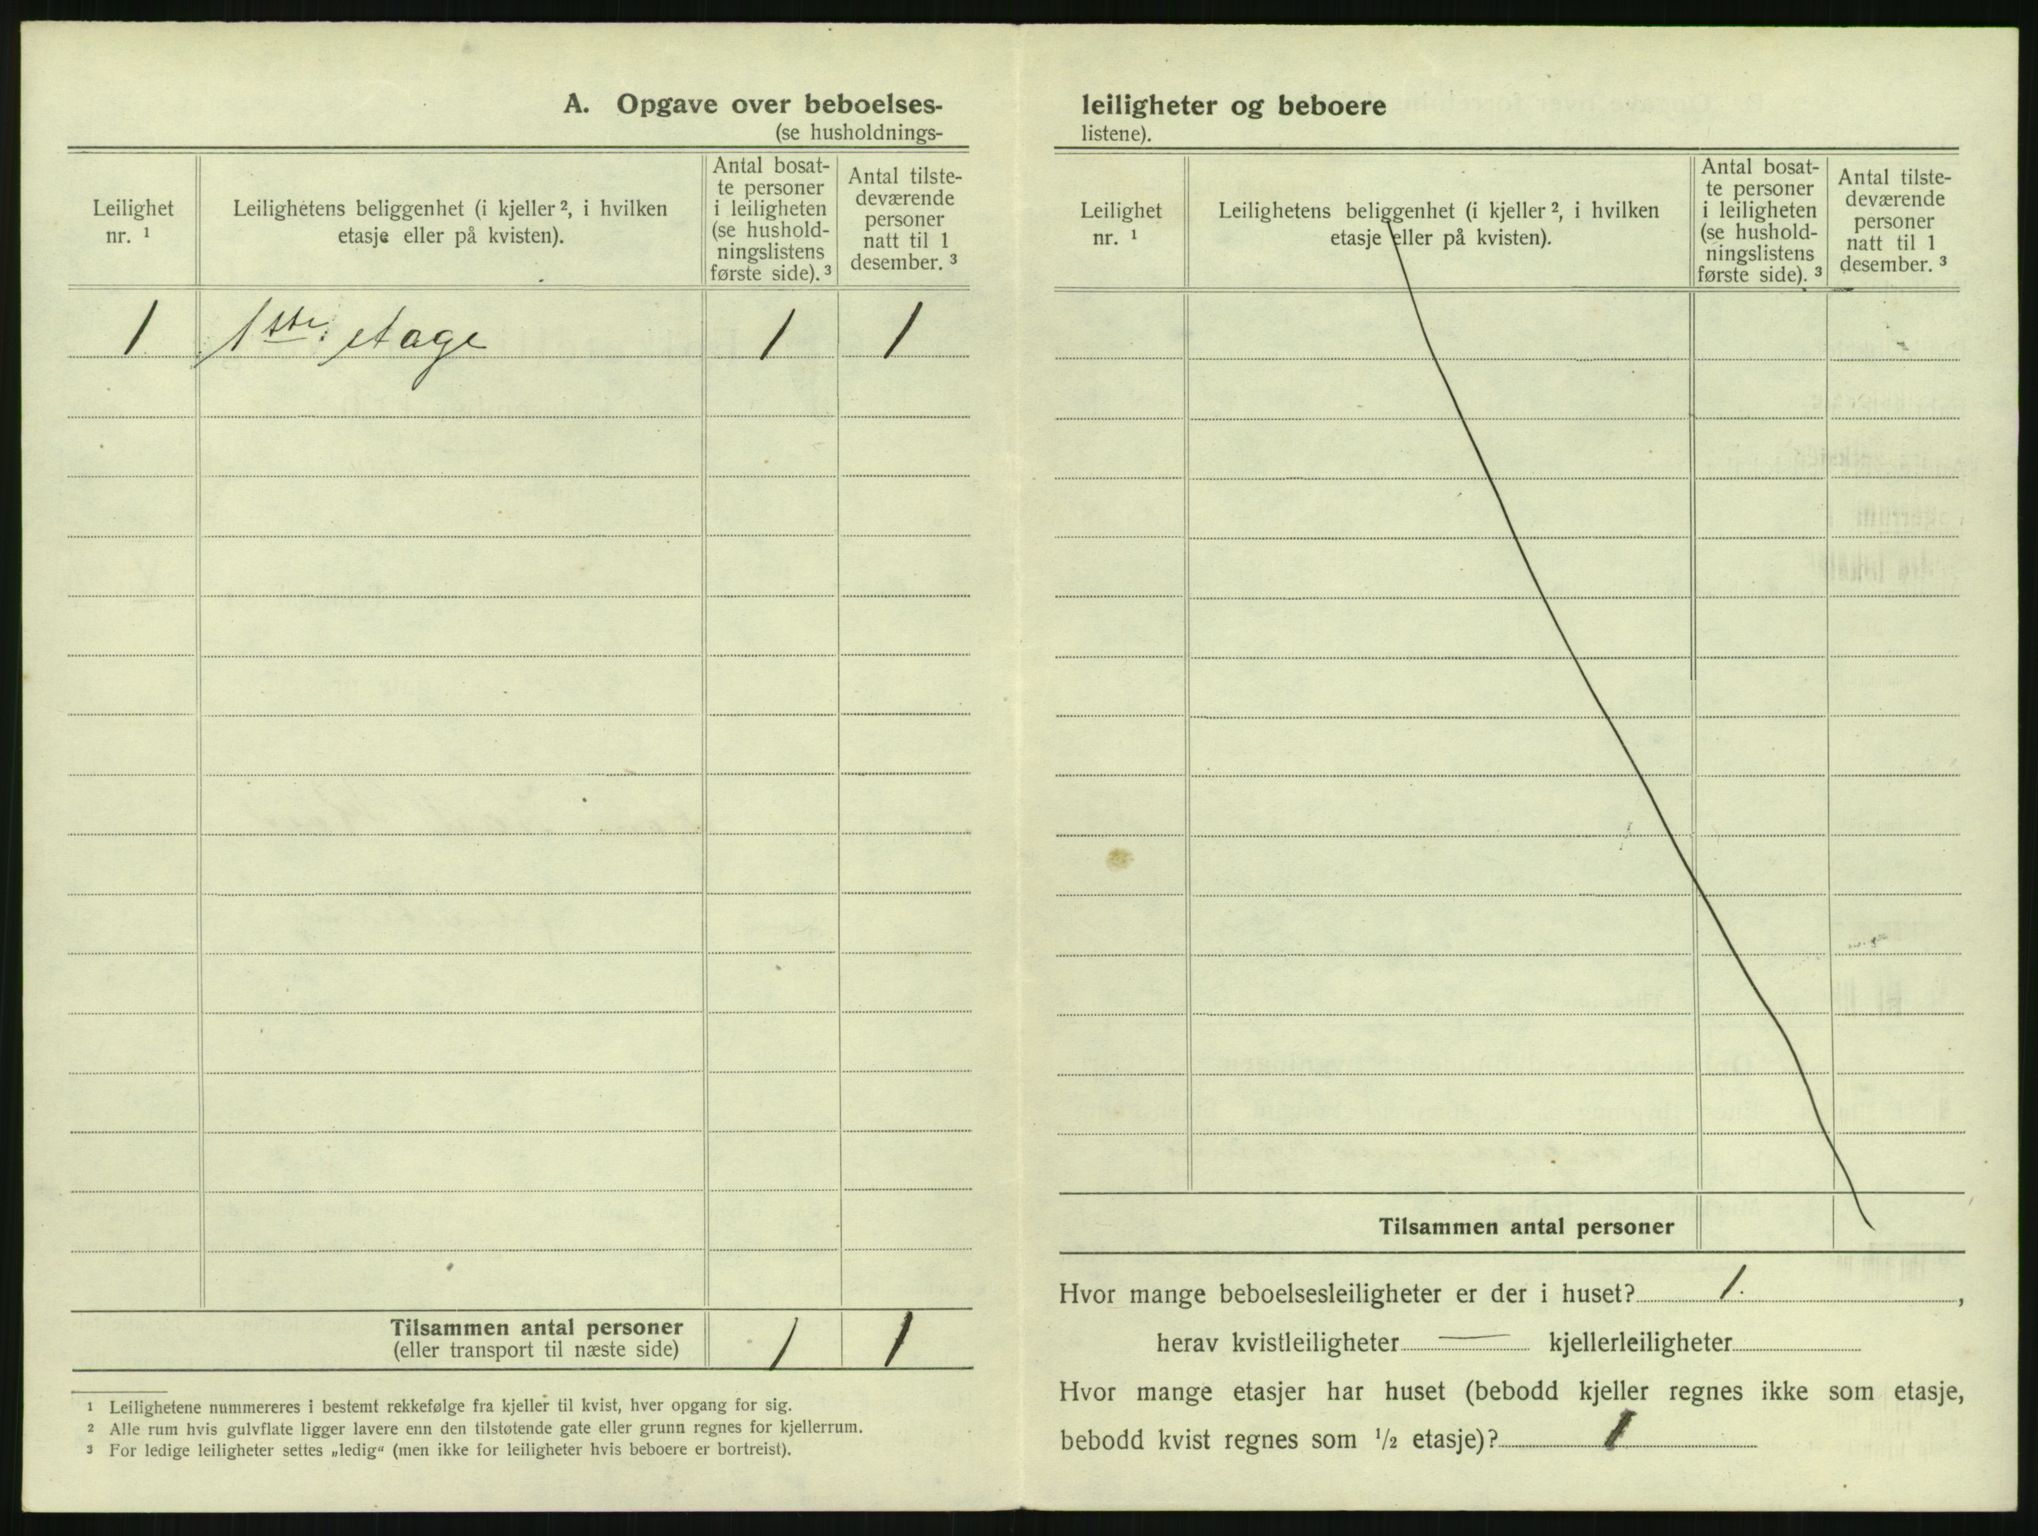 A. Opgave over beboelses-
(se husholdnings-
Leilighet
nr. ¹
Leilighetens beliggenhet (i kjeller ², i hvilken
etasje eller på kvisten).
Antal bosat-
te personer
i leiligheten
(se hushold-
ningslistens
første side). ³
Antal tilste-
deværende
personer
natt til 1
desember. ³
1 1ste etage 1 1
Tilsammen antal personer
(eller transport til næste side)
1 1
¹ Leilighetene nummereres i bestemt rekkefølge fra kjeller til kvist, hver opgang for sig.
² Alle rum hvis gulvflate ligger lavere enn den tilstøtende gate eller grunn regnes for kjellerrum.
³ For ledige leiligheter settes „ledig“ (men ikke for leiligheter hvis beboere er bortreist).
leiligheter og beboere
listene).
Leilighet
nr. ¹
Leilighetens beliggenhet (i kjeller ², i hvilken
etasje eller på kvisten).
Antal bosat-
te personer
i leiligheten
(se hushold-
ningslistens
første side). ³
Antal tilste-
deværende
personer
natt til 1
desember. ³
Tilsammen antal personer
Hvor mange beboelsesleiligheter er der i huset? 1.,
herav kvistleiligheter — kjellerleiligheter
Hvor mange etasjer har huset (bebodd kjeller regnes ikke som etasje,
bebodd kvist regnes som ½ etasje)? 1